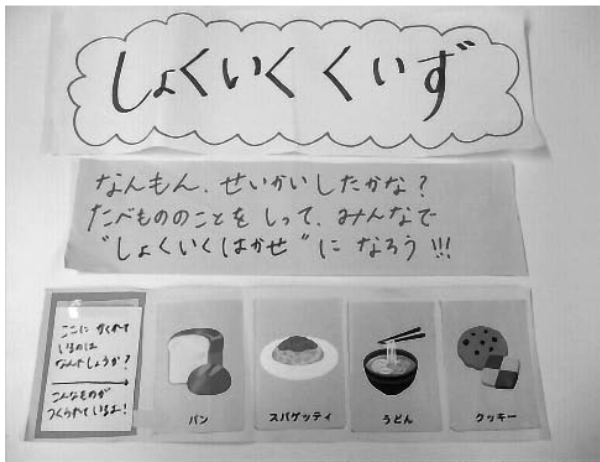 しょくいく くいず
なんもん、せいかいしたかな?
たべもののことを しって、みんなで
"しょくいくはかせ"に なろう!!!
ここに かくれて
いるのは
なんでしょうか?
こんなものが
つくられているよ!
パン
スパゲッティ
うどん
クッキー